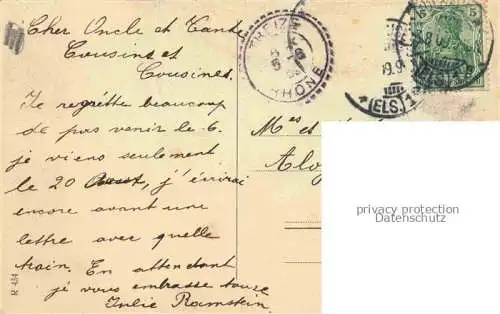 Cher Oncle et Tante
Cousins et
Cousines.
Je regrette beaucoup
de pas venir le 6.
je viens seulement
le 20 Aout, j'écrirai
encore avant une
lettre avec quelle
train. En attendant
je vous embrasse tous
Julie Ramstein
RHÔNE
5
(ELS.)
M es et
privacy protection
Datenschutz